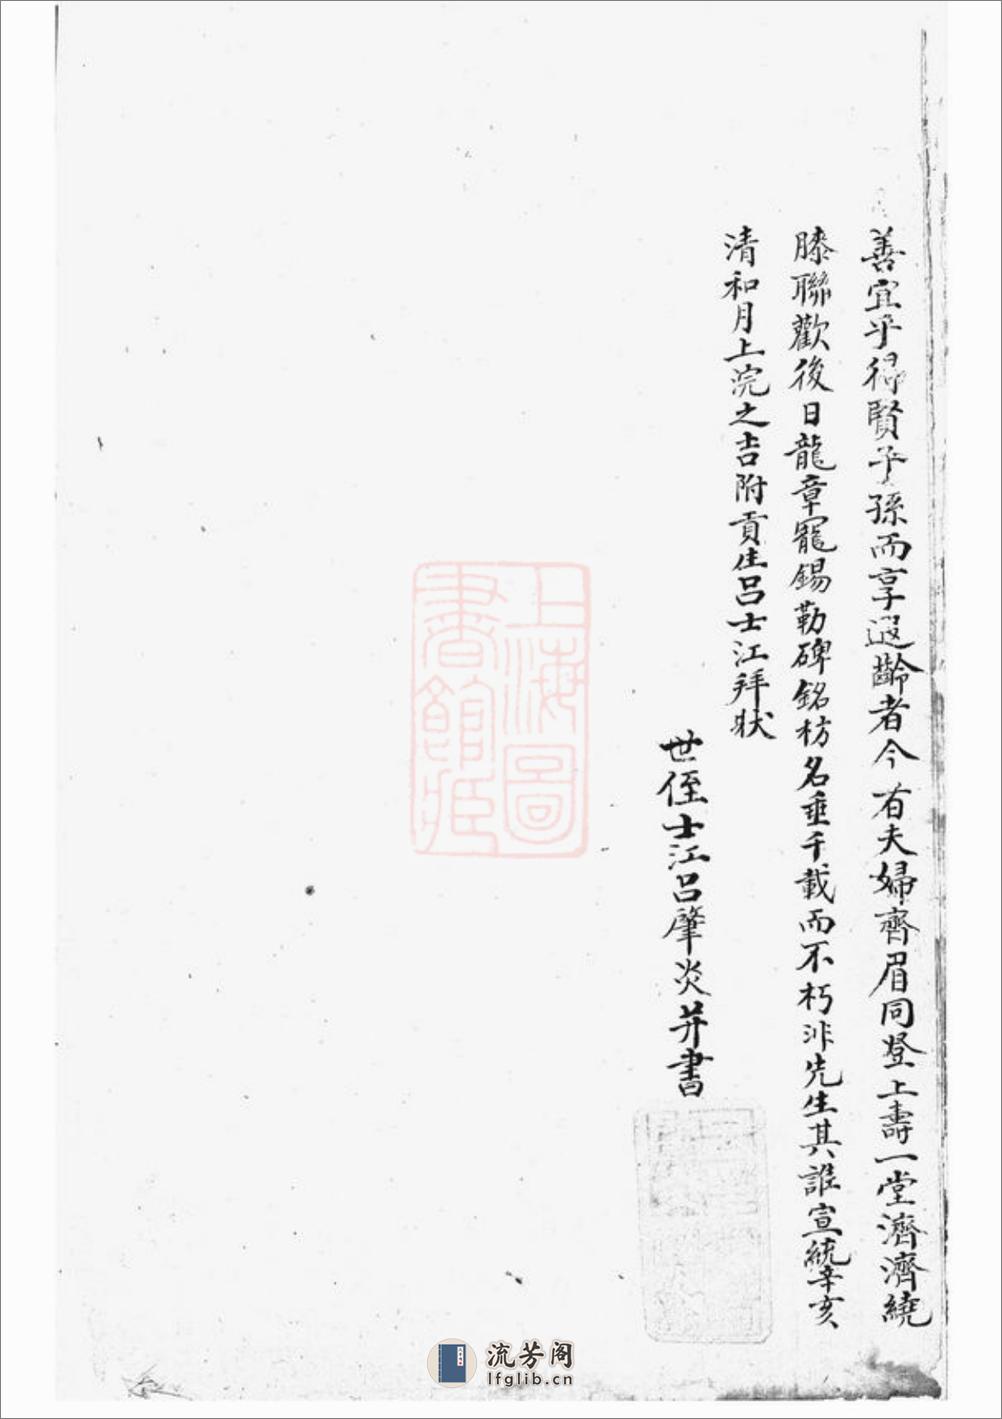 善宜乎得賢子孫而享遐齡者今有夫婦齊眉同登上壽一堂濟濟繞
膝聯歡後日龍章寵錫勒碑銘枋名垂千載而不朽非先生其誰宣統辛亥
清和月上浣之吉附貢生呂士江拜狀
世侄士江呂肇炎并書
上海圖
書館藏
流芳阁
lfglib.cn